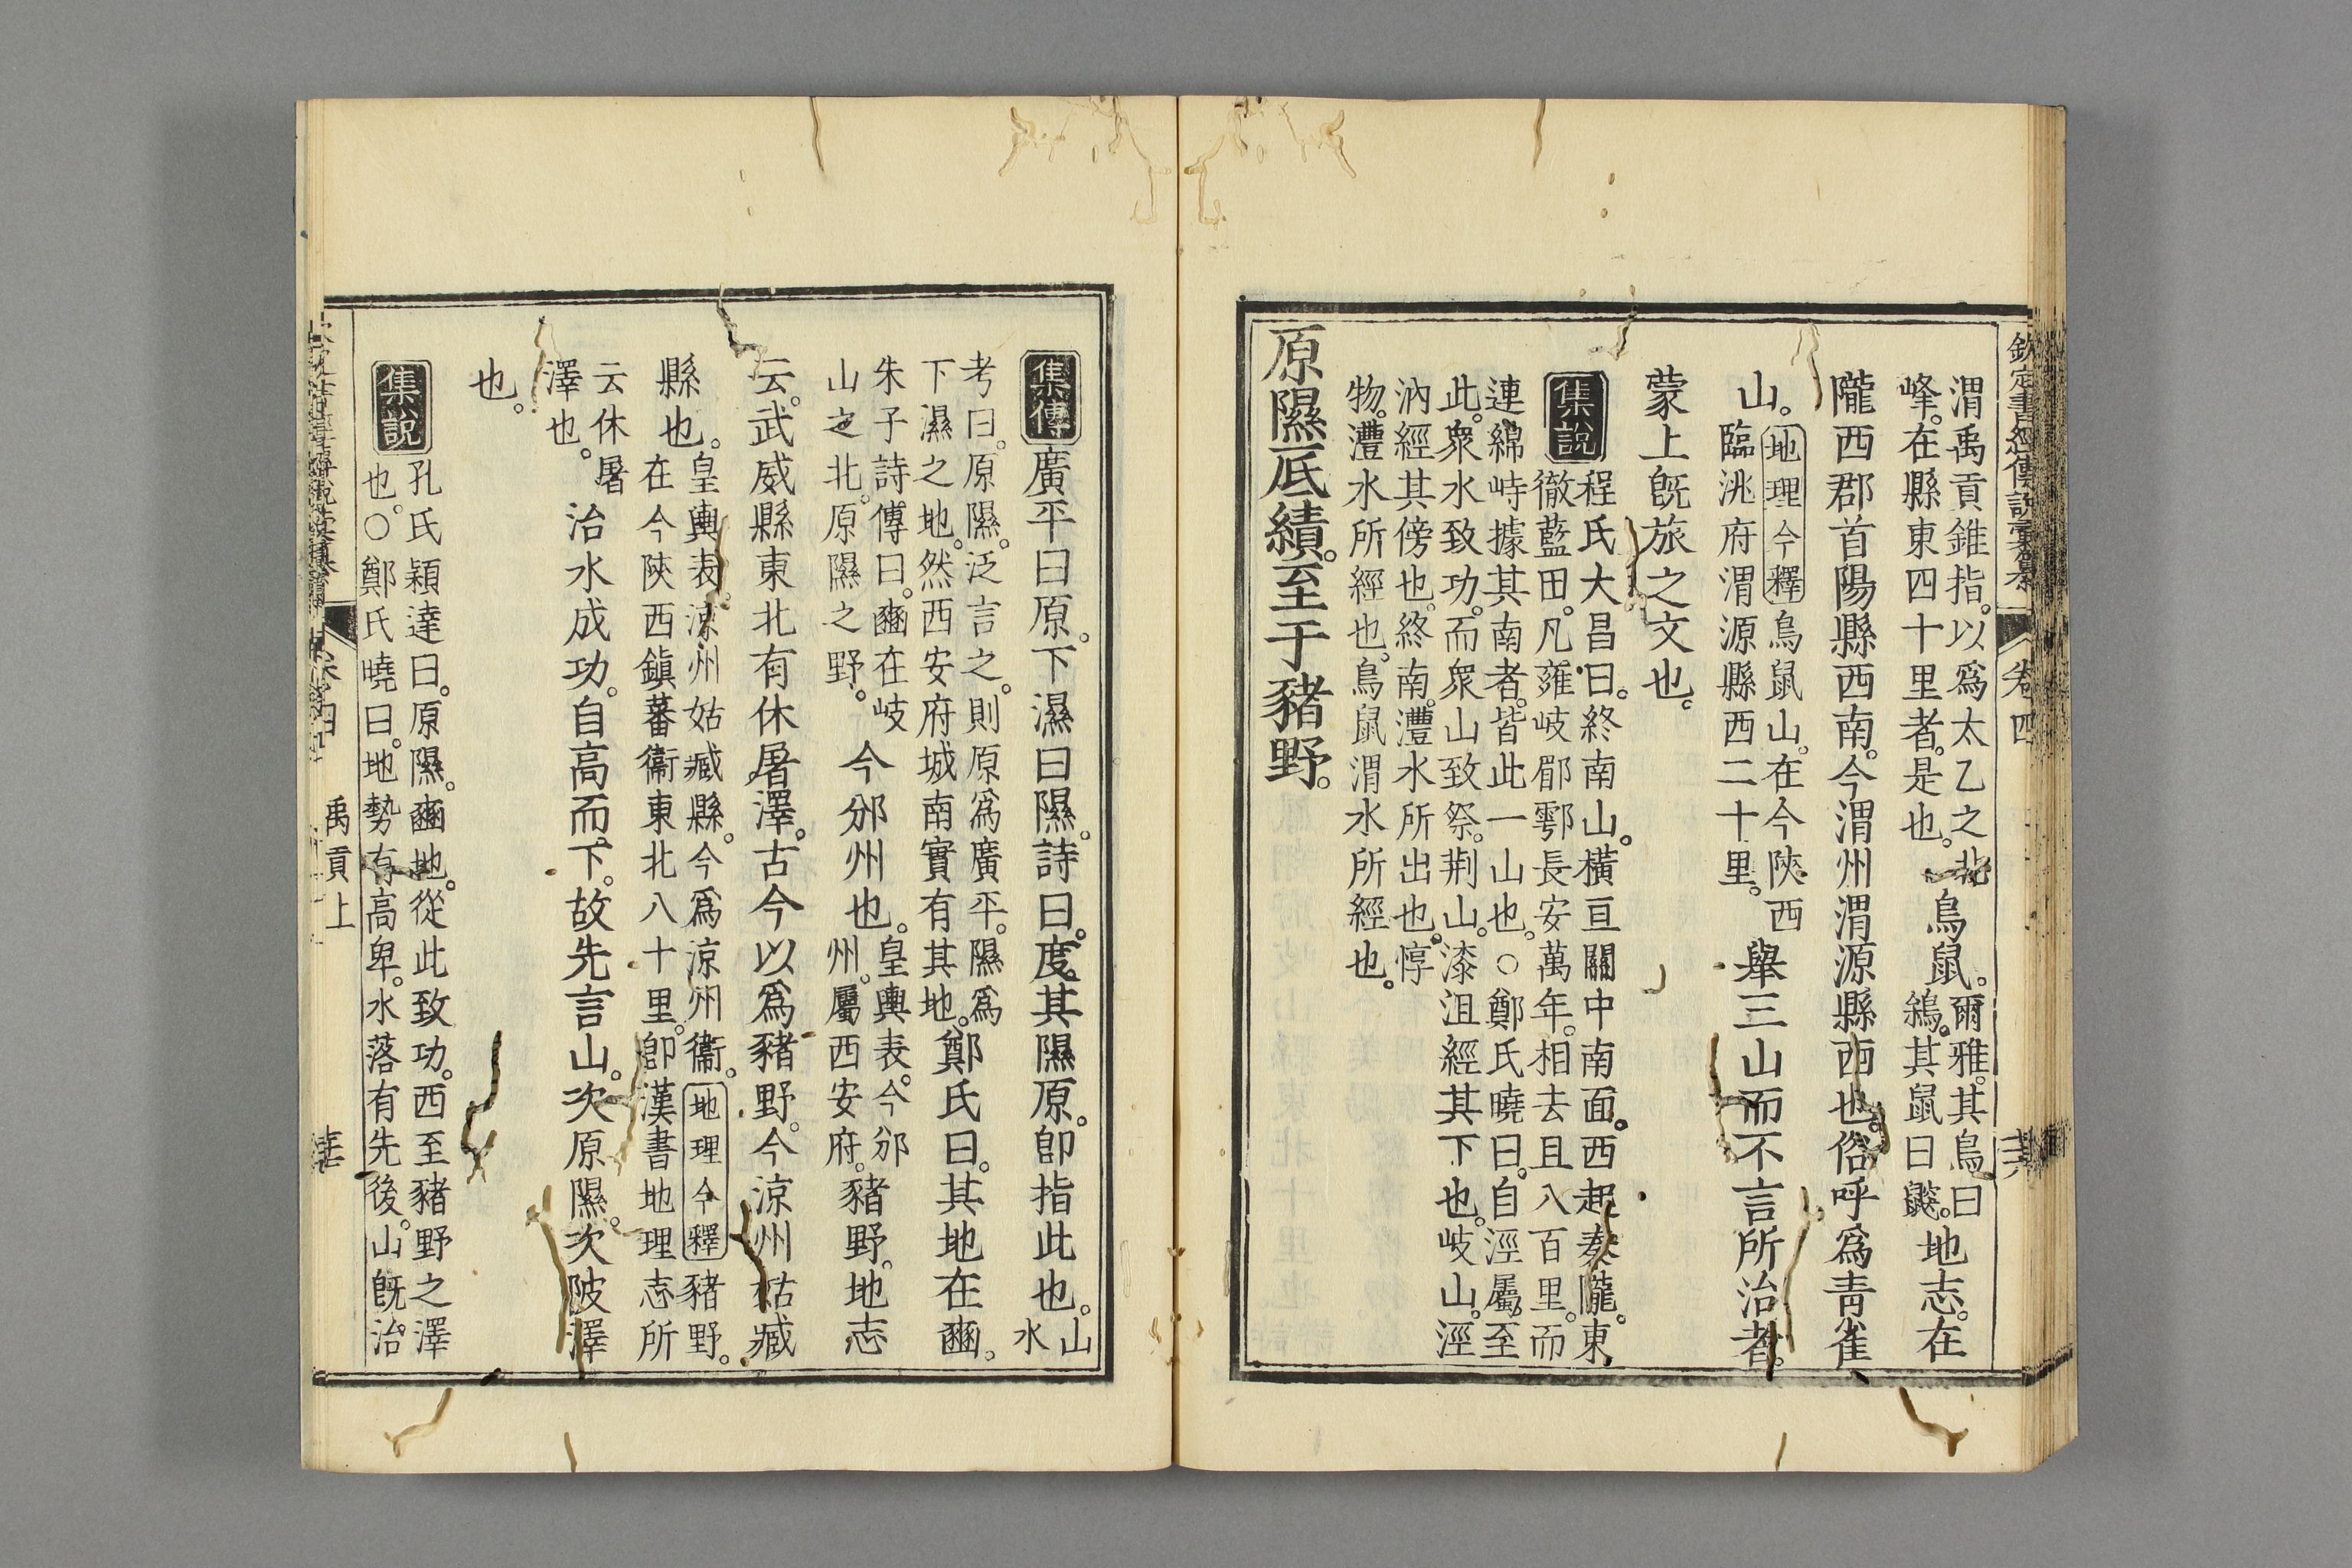 欽定書經傳說彙纂 卷四
渭禹貢錐指。以爲太乙之北
峰。在縣東四十里者。是也。
鳥鼠。
爾雅。其鳥曰
鵌。其鼠曰鼵。
地志。在
隴西郡首陽縣西南。今渭州渭源縣西也。俗呼爲青雀
山。
地理今釋 鳥鼠山。在今陝西
臨洮府渭源縣西二十里。
舉三山而不言所治者。
蒙上旣旅之文也。
集說
程氏大昌曰。終南山。橫亘關中南面。西起秦隴。東
徹藍田。凡雍岐郿鄠長安萬年。相去且八百里。而
連綿峙據其南者。皆此一山也。○鄭氏曉曰。自涇屬至
此。衆水致功。而衆山致祭。荆山。漆沮經其下也。岐山。涇
汭經其傍也。終南。灃水所出也。惇
物。灃水所經也。鳥鼠渭水所經也。
原隰厎績。至于豬野。
集傳
廣平曰原。下濕曰隰。詩曰。度其隰原。卽指此也。
山
水
考曰。原隰。泛言之。則原爲廣平。隰爲
下濕之地。然西安府城南實有其地。
鄭氏曰。其地在豳。
朱子詩傳曰。豳在岐
山之北。原隰之野。
今邠州也。
皇輿表。今邠
州。屬西安府。
豬野。地志
云。武威縣東北有休屠澤。古今以爲豬野。今涼州姑臧
縣也。
皇輿表。涼州姑臧縣。今爲涼州衞。地理今釋 豬野。
在今陝西鎭蕃衞東北八十里。卽漢書地理志所
云休屠
澤也。
治水成功。自高而下。故先言山。次原隰。次陂澤
也。
集說
孔氏穎達曰。原隰。豳地。從此致功。西至豬野之澤
也。○鄭氏曉曰。地勢有高卑。水落有先後。山旣治
禹貢上